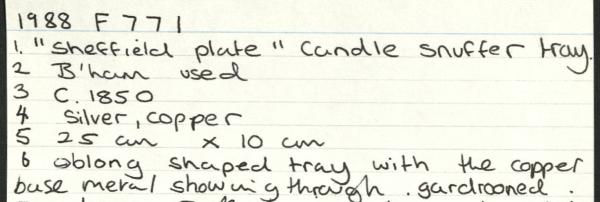 1988 F 771
1. "Sheffield plate" Candle snuffer tray.
2 B'ham used
3 C. 1850
4 Silver, copper
5 25 cm x 10 cm
6 oblong shaped tray with the copper
base metal showing through. gardrooned.